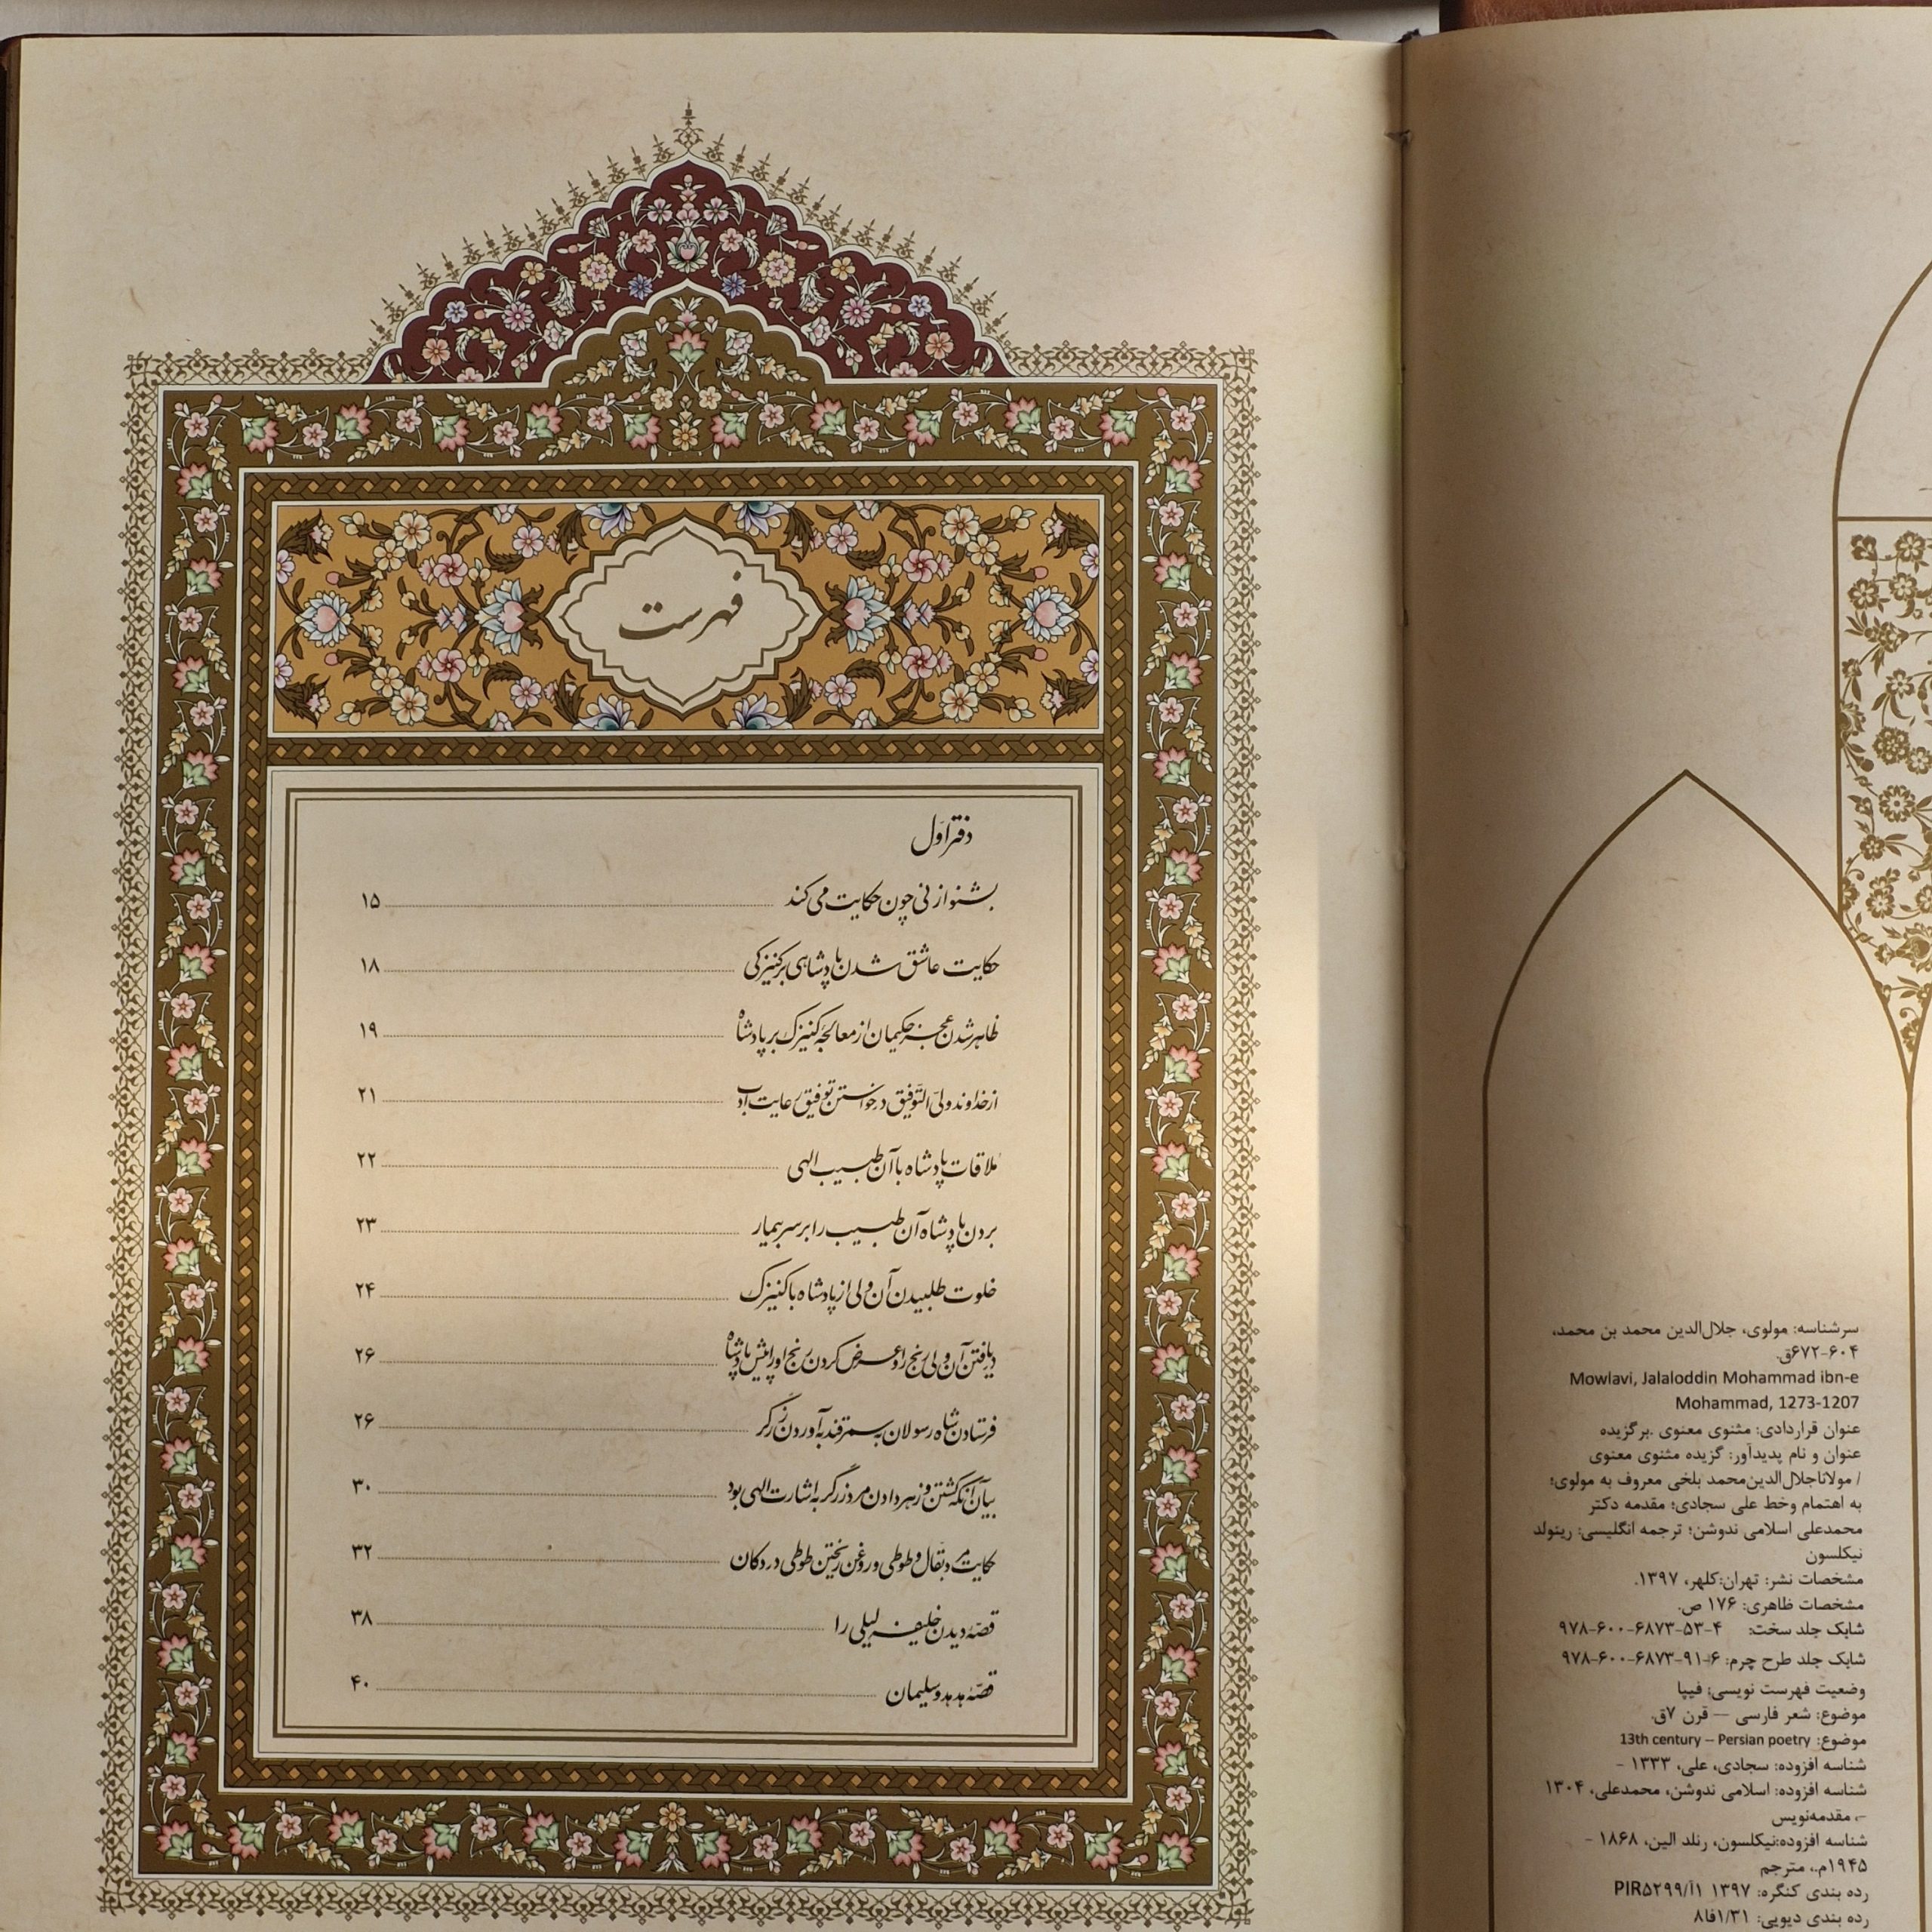 سرشناسه: مولوی، جلال‌الدین محمد بن محمد،
۶۰۴-۶۷۲ق.
Mowlavi, Jalaloddin Mohammad ibn-e
Mohammad, 1273-1207
عنوان قراردادی: مثنوی معنوی .برگزیده
عنوان و نام پدیدآور: گزیده مثنوی معنوی
/ مولاناجلال‌الدین‌محمد بلخی معروف به مولوی؛
به اهتمام وخط علی سجادی؛ مقدمه دکتر
محمدعلی اسلامی ندوشن؛ ترجمه انگلیسی: رینولد
نیکلسون
مشخصات نشر: تهران:کلهر، ۱۳۹۷.
مشخصات ظاهری: ۱۷۶ ص.
شابک جلد سخت: ۴-۵۳-۶۸۷۳-۶۰۰-۹۷۸
شابک جلد طرح چرم: ۶-۹۱-۶۸۷۳-۶۰۰-۹۷۸
وضعیت فهرست نویسی: فیپا
موضوع: شعر فارسی -- قرن ۷ق.
موضوع: 13th century – Persian poetry
شناسه افزوده: سجادی، علی، ۱۳۳۳ -
شناسه افزوده: اسلامی ندوشن، محمدعلی، ۱۳۰۴
-، مقدمه‌نویس
شناسه افزوده:نیکلسون، رنلد الین، ۱۸۶۸ -
۱۹۴۵م.، مترجم
رده بندی کنگره: ۱۳۹۷ ۱آ/PIR۵۲۹۹
رده بندی دیویی: ۸فا۱/۳۱
فهرست
دفتر اوّل
بشنو از نی چون حکایت می‌کند ۱۵
حکایت عاشق شدن پادشاهی بر کنیزکی ۱۸
ظاهر شدن عجز حکیمان از معالجهٔ کنیزک بر پادشاه ۱۹
از خداوند ولیّ التّوفیق درخواستن توفیق رعایت ادب ۲۱
ملاقات پادشاه با آن طبیب الهی ۲۲
بردن پادشاه آن طبیب را بر سر بیمار ۲۳
خلوت طلبیدن آن ولی از پادشاه با کنیزک ۲۴
دریافتن آن ولی رنج را و عرض کردن رنج او را پیش پادشاه ۲۶
فرستادن شاه رسولان به سمرقند به آوردن زرگر ۲۶
بیان آنکه کشتن و زهر دادن مرد زرگر به اشارت الهی بود ۳۰
حکایت مرد بقّال و طوطی و روغن ریختن طوطی در دکان ۳۲
قصّهٔ دیدن خلیفه لیلی را ۳۸
قصّهٔ هدهد و سلیمان ۴۰